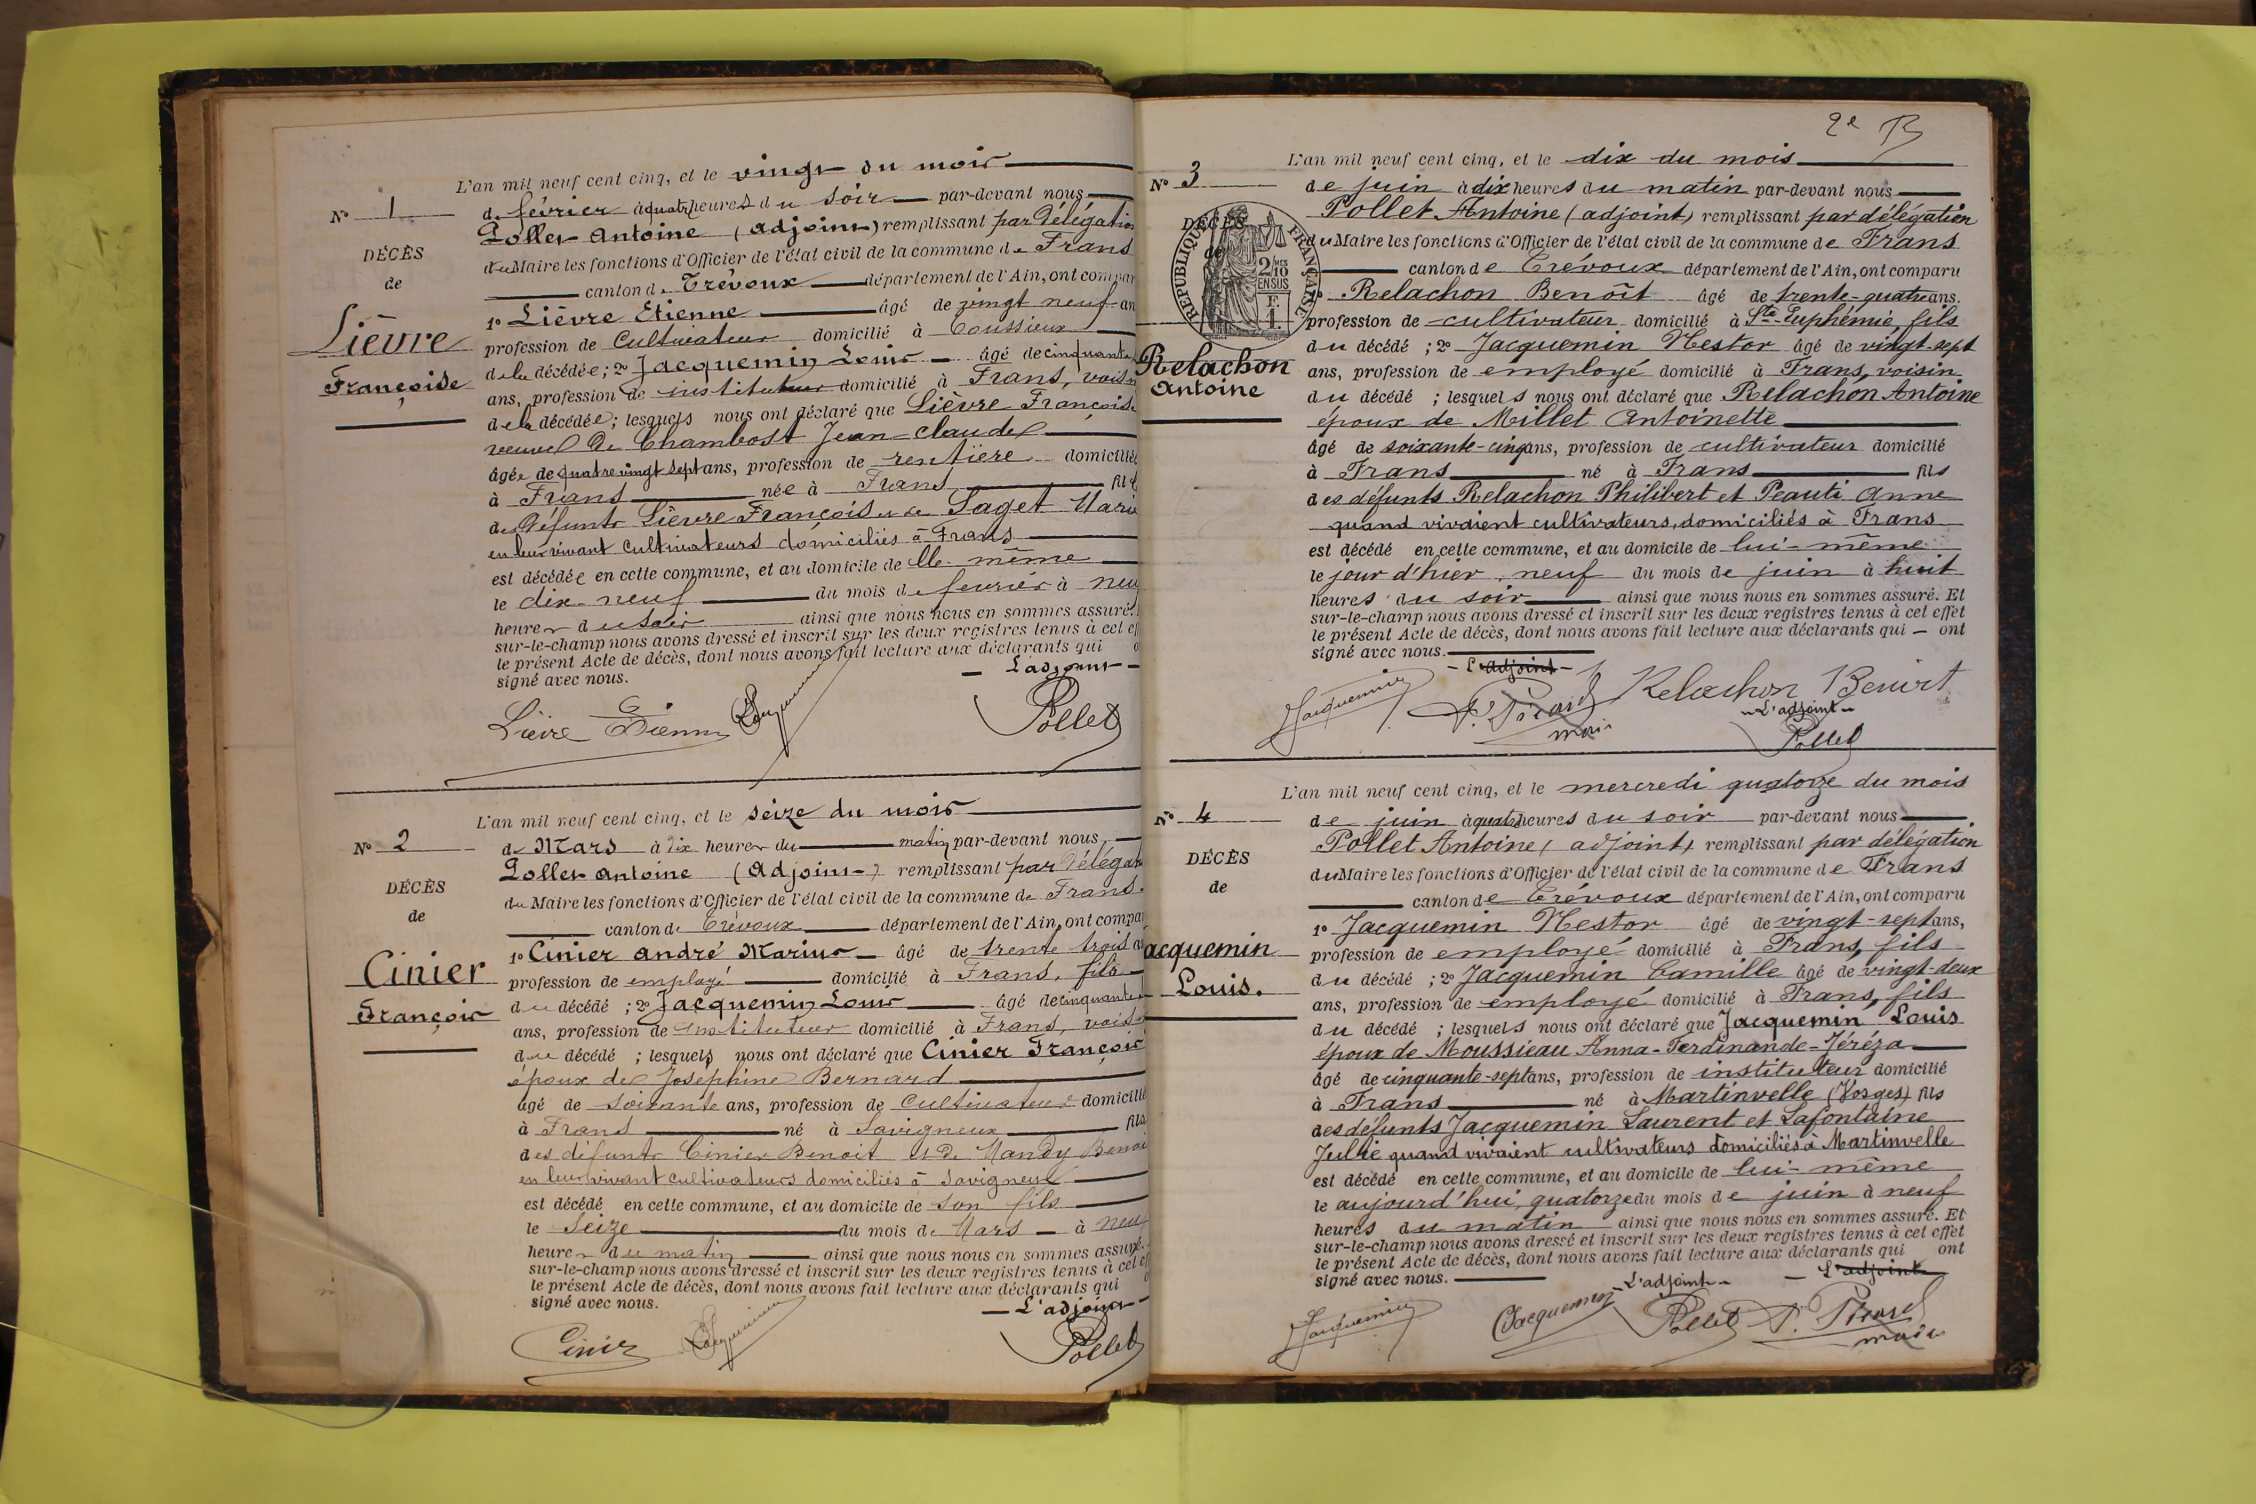 L'an mil neuf cent cinq, et le vingt du mois
N° 1
de février à quatre heures du soir par-devant nous
Pollet Antoine (adjoint) remplissant par délégation
DÉCÈS
du Maire les fonctions d'Officier de l'état civil de la commune de Frans
de
canton de Trévoux département de l'Ain, ont compar
1° Lièvre Etienne âgé de vingt neuf an
Lièvre
profession de Cultivateur domicilié à Toussieux
Françoise
de la décédée ; 2° Jacquemin Louis âgé de cinquante
ans, profession de instituteur domicilié à Frans, voisin
de la décédée ; lesquels nous ont déclaré que Lièvre Françoise
veuve de Chambost Jean-Claude
âgée de quatre vingt sept ans, profession de rentière domiciliée
à Frans née à Frans fil
de défunts Lièvre François et de Saget Marie
en leur vivant Cultivateurs domiciliés à Frans
est décédée en cette commune, et au domicile de elle même
le dix-neuf du mois de février à neuf
heures du soir ainsi que nous nous en sommes assuré.
sur-le-champ nous avons dressé et inscrit sur les deux registres tenus à cet ef
le présent Acte de décès, dont nous avons fait lecture aux déclarants qui o
signé avec nous.
L'adjoint
Lièvre Etienne Jacquemin Pollet
L'an mil neuf cent cinq, et le seize du mois
N° 2
de Mars à dix heures du matin par-devant nous
Pollet Antoine (Adjoint) remplissant par délégat
DÉCÈS
du Maire les fonctions d'Officier de l'état civil de la commune de Frans
de
canton de Trévoux département de l'Ain, ont compar
1° Cinier André Marius âgé de trente trois a
Cinier
profession de employé domicilié à Frans, fils
François
du décédé ; 2° Jacquemin Louis âgé de cinquante
ans, profession de instituteur domicilié à Frans, vois
du décédé ; lesquels nous ont déclaré que Cinier François
époux de Josephine Bernard
âgé de soixante ans, profession de Cultivateur domicilié
à Frans né à Savigneux fils
des défunts Cinier Benoit et de Mandy Benoi
en leur vivant cultivateurs domiciliés à Savigneux
est décédé en cette commune, et au domicile de son fils
le seize du mois de Mars à neuf
heures du matin ainsi que nous nous en sommes assuré.
sur-le-champ nous avons dressé et inscrit sur les deux registres tenus à cet ef
le présent Acte de décès, dont nous avons fait lecture aux déclarants qui o
signé avec nous.
L'adjoint
Cinier Jacquemin Pollet
2e
L'an mil neuf cent cinq, et le dix du mois
N° 3
de juin à dix heures du matin par-devant nous
Pollet Antoine (adjoint) remplissant par délégation
DÉCÈS
du Maire les fonctions d'Officier de l'état civil de la commune de Frans
de
RÉPUBLIQUE FRANÇAISE
2/10 EN SUS
F. 1.
canton de Trévoux département de l'Ain, ont comparu
Relachon Benoît âgé de trente-quatre ans.
profession de cultivateur domicilié à Ste-Euphémie, fils
du décédé ; 2° Jacquemin Nestor âgé de vingt-sept
Relachon
ans, profession de employé domicilié à Frans, voisin
Antoine
du décédé ; lesquels nous ont déclaré que Relachon Antoine
époux de Millet Antoinette
âgé de soixante-cinq ans, profession de cultivateur domicilié
à Frans né à Frans fils
des défunts Relachon Philibert et Peauti Anne
quand vivaient cultivateurs, domiciliés à Frans
est décédé en cette commune, et au domicile de lui-même
le jour d'hier, neuf du mois de juin à huit
heures du soir ainsi que nous nous en sommes assuré. Et
sur-le-champ nous avons dressé et inscrit sur les deux registres tenus à cet effet
le présent Acte de décès, dont nous avons fait lecture aux déclarants qui — ont
signé avec nous.
L'adjoint
Jacquemin Relachon Benoit
maire
L'adjoint
Pollet
L'an mil neuf cent cinq, et le mercredi quatorze du mois
N° 4
de juin à quatre heures du soir par-devant nous
Pollet Antoine, (adjoint) remplissant par délégation
DÉCÈS
du Maire les fonctions d'Officier de l'état civil de la commune de Frans
de
canton de Trévoux département de l'Ain, ont comparu
1° Jacquemin Nestor âgé de vingt-sept ans,
acquemin
profession de employé domicilié à Frans, fils
Louis.
du décédé ; 2° Jacquemin Camille âgé de vingt-deux
ans, profession de employé domicilié à Frans, fils
du décédé ; lesquels nous ont déclaré que Jacquemin Louis
époux de Moussieau Anna-Ferdinande-Féréza
âgé de cinquante-sept ans, profession de instituteur domicilié
à Frans né à Martinvelle (Vosges) fils
des défunts Jacquemin Laurent et Lafontaine
Julie quand vivaient cultivateurs domiciliés à Martinvelle
est décédé en cette commune, et au domicile de lui-même
le aujourd'hui, quatorze du mois de juin à neuf
heures du matin ainsi que nous nous en sommes assuré. Et
sur-le-champ nous avons dressé et inscrit sur les deux registres tenus à cet effet
le présent Acte de décès, dont nous avons fait lecture aux déclarants qui ont
signé avec nous.
L'adjoint L'adjoint
Jacquemin Jacquemin Pollet
maire